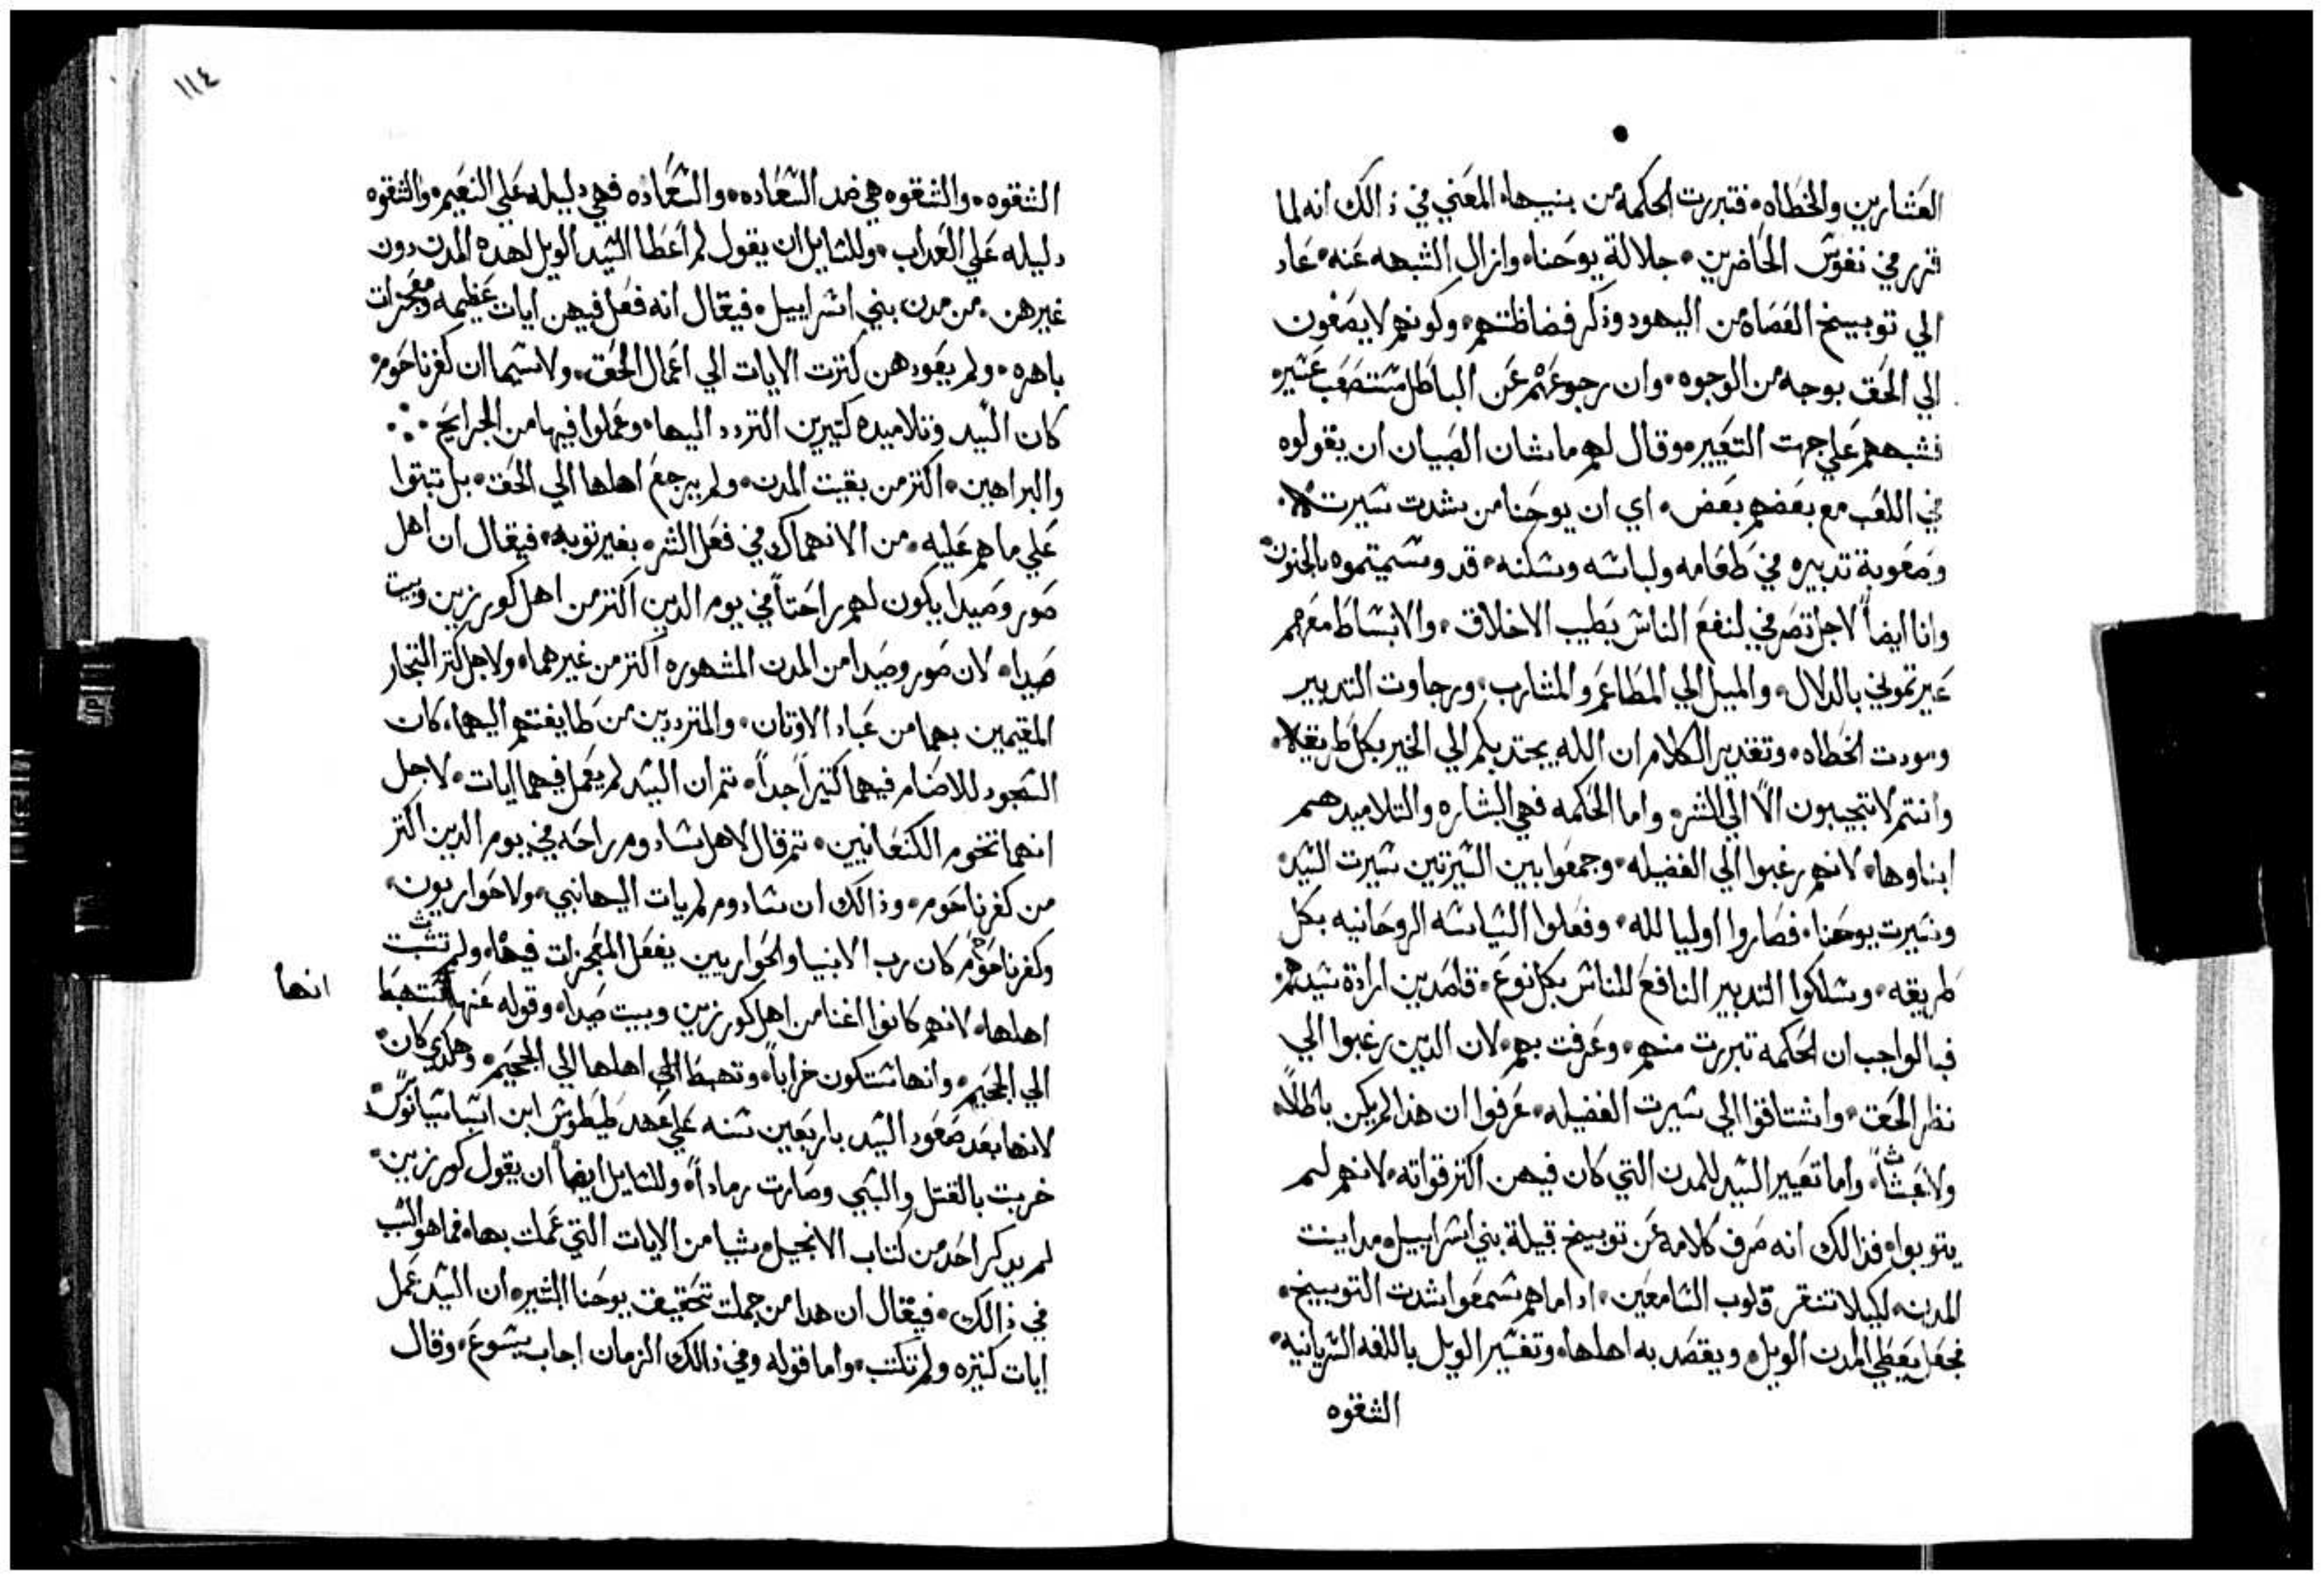 العشارين والخطاه، فتبررت الحكمة من بنيها، المعني في ذالك انه لما
قرر في نفوس الحاضرين، جلالة يوحنا، وازال الشبهه عنه، عاد
الي توبييخ العصاه من اليهود وذكر فضاظتهم، وكونهم لا يصغون
الي الحق بوجه من الوجوه، وان رجوعهم عن الباطل مستصعب عسير،
فشبههم علي جهت التعيير، وقال لهم ما شان الصبيان ان يقولوه
في اللعب مع بعضهم بعض، اي ان يوحنا من شدت سيرته
وصعوبة تدبيره في طعامه ولباسه وسكنه، قد وسميتموه بالجنون،
وانا ايضاً لاجل تصرفي لنفع الناس بطيب الاخلاق، والانبساط معهم
عيرتموني بالدلال، والميل الي المطاعم والمشارب، ورجاوت التدبير
ومودت الخطاه، وتقدير الكلام ان الله يجتدبكم الي الخير بكل طريقه،
وانتم لا تجيبون الاّ الي الشر، واما الحكمه فهي البشاره والتلاميد هم
ابناوها، لانهم رغبوا الي الفضيله، وجمعوا بين السيرتين سيرت السيد،
وسيرت يوحنا، فصاروا اوليا لله، وفعلوا السياسه الروحانيه بكل
طريقه، وسلكوا التدبير النافع للناس بكل نوع، قاصدين ارادة سيدهم،
فبالواجب ان الحكمه تبررت منهم، وعرفت بهم، لان الدين رغبوا الي
نظر الحق، واشتاقوا الي سيرت الفضيله، عرفوا ان هذا لم يكن باطلاً،
ولا عبثاً، واما تعيير السيد للمدن التي كان فيهن اكتر قواته، لانهم لم
يتوبوا، فذالك انه صرف كلامه عن توبييخ قبيلة بني اسراييل، مداينت
المدن، لكيلا تنقر قلوب السامعين، ادا ما هم سمعوا شدت التوبييخ،
فجعل يعطي المدن الويل، ويقصد به اهلها، وتفسير الويل باللغه السريانيه،
الشقوه
١١٤
الشقوه، والشقوه هي ضد السعاده، والسعاده فهي دليله علي النعيم، والشقوه
دليله علي العداب، وللسايل ان يقول لم اعطا السيد الويل لهده المدن دون
غيرهن، من مدن بني اسراييل، فيقال انه فعل فيهن ايات عظيمه ومعجزات
باهره، ولم يعودهن كترت الايات الي اعمال الحق، ولا سيما ان كفرناحوم،
كان السيد وتلاميده كتيرين التردد اليها، وعملوا فيها من الجرايح
والبراهين، اكتر من بقيت المدن، ولم يرجع اهلها الي الحق، بل تبتوا
علي ما هم عليه، من الانهماك في فعل الشر، بغير توبه، فيقال ان اهل
صور وصيدا يكون لهم راحتاً في يوم الدين اكتر من اهل كورزين وبيت
صيدا، لان صور وصيدا من المدن المشهوره اكتر من غيرهما، ولاجل كتر التجار
المقيمين بهما من عباد الاوتان، والمترددين من طايفتهم اليهما، كان
السجود للاصنام فيهما كتيراً جداً، تم ان السيد لم يعمل فيهما ايات، لاجل
انهما تخوم الكنعانيين، تم قال لاهل سادوم راحه في يوم الدين اكتر
من كفرناحوم، وذالك ان سادوم لم يات اليها نبي، ولا حواريون،
وكفرناحوم كان رب الانبيا والحواريين يفعل المعجزات فيها، ولم تثبت
اهلها، لانهم كانوا اغنا من اهل كورزين وبيت صيدا، وقوله عنها ستهبط انها
الي الجحيم، وانها ستكون خراباً، وتهبط الي اهلها الي الجحيم، وهكدي كان،
لانها بعد صعود السيد باربعين سنه علي عهد طيطوس ابن اسباسيانوس،
خربت بالقتل والسبي وصارت رماداً، وللسايل ايضاً ان يقول كورزين،
لم يدكر احد من كتاب الانجيل، شيا من الايات التي عملت بها، فما هو السبب
في ذالك، فيقال ان هدا من جملت تحقيق يوحنا البشير، ان السيد عمل
ايات كتيره ولم تكتب، واما قوله وفي ذالك الزمان اجاب يسوع، وقال